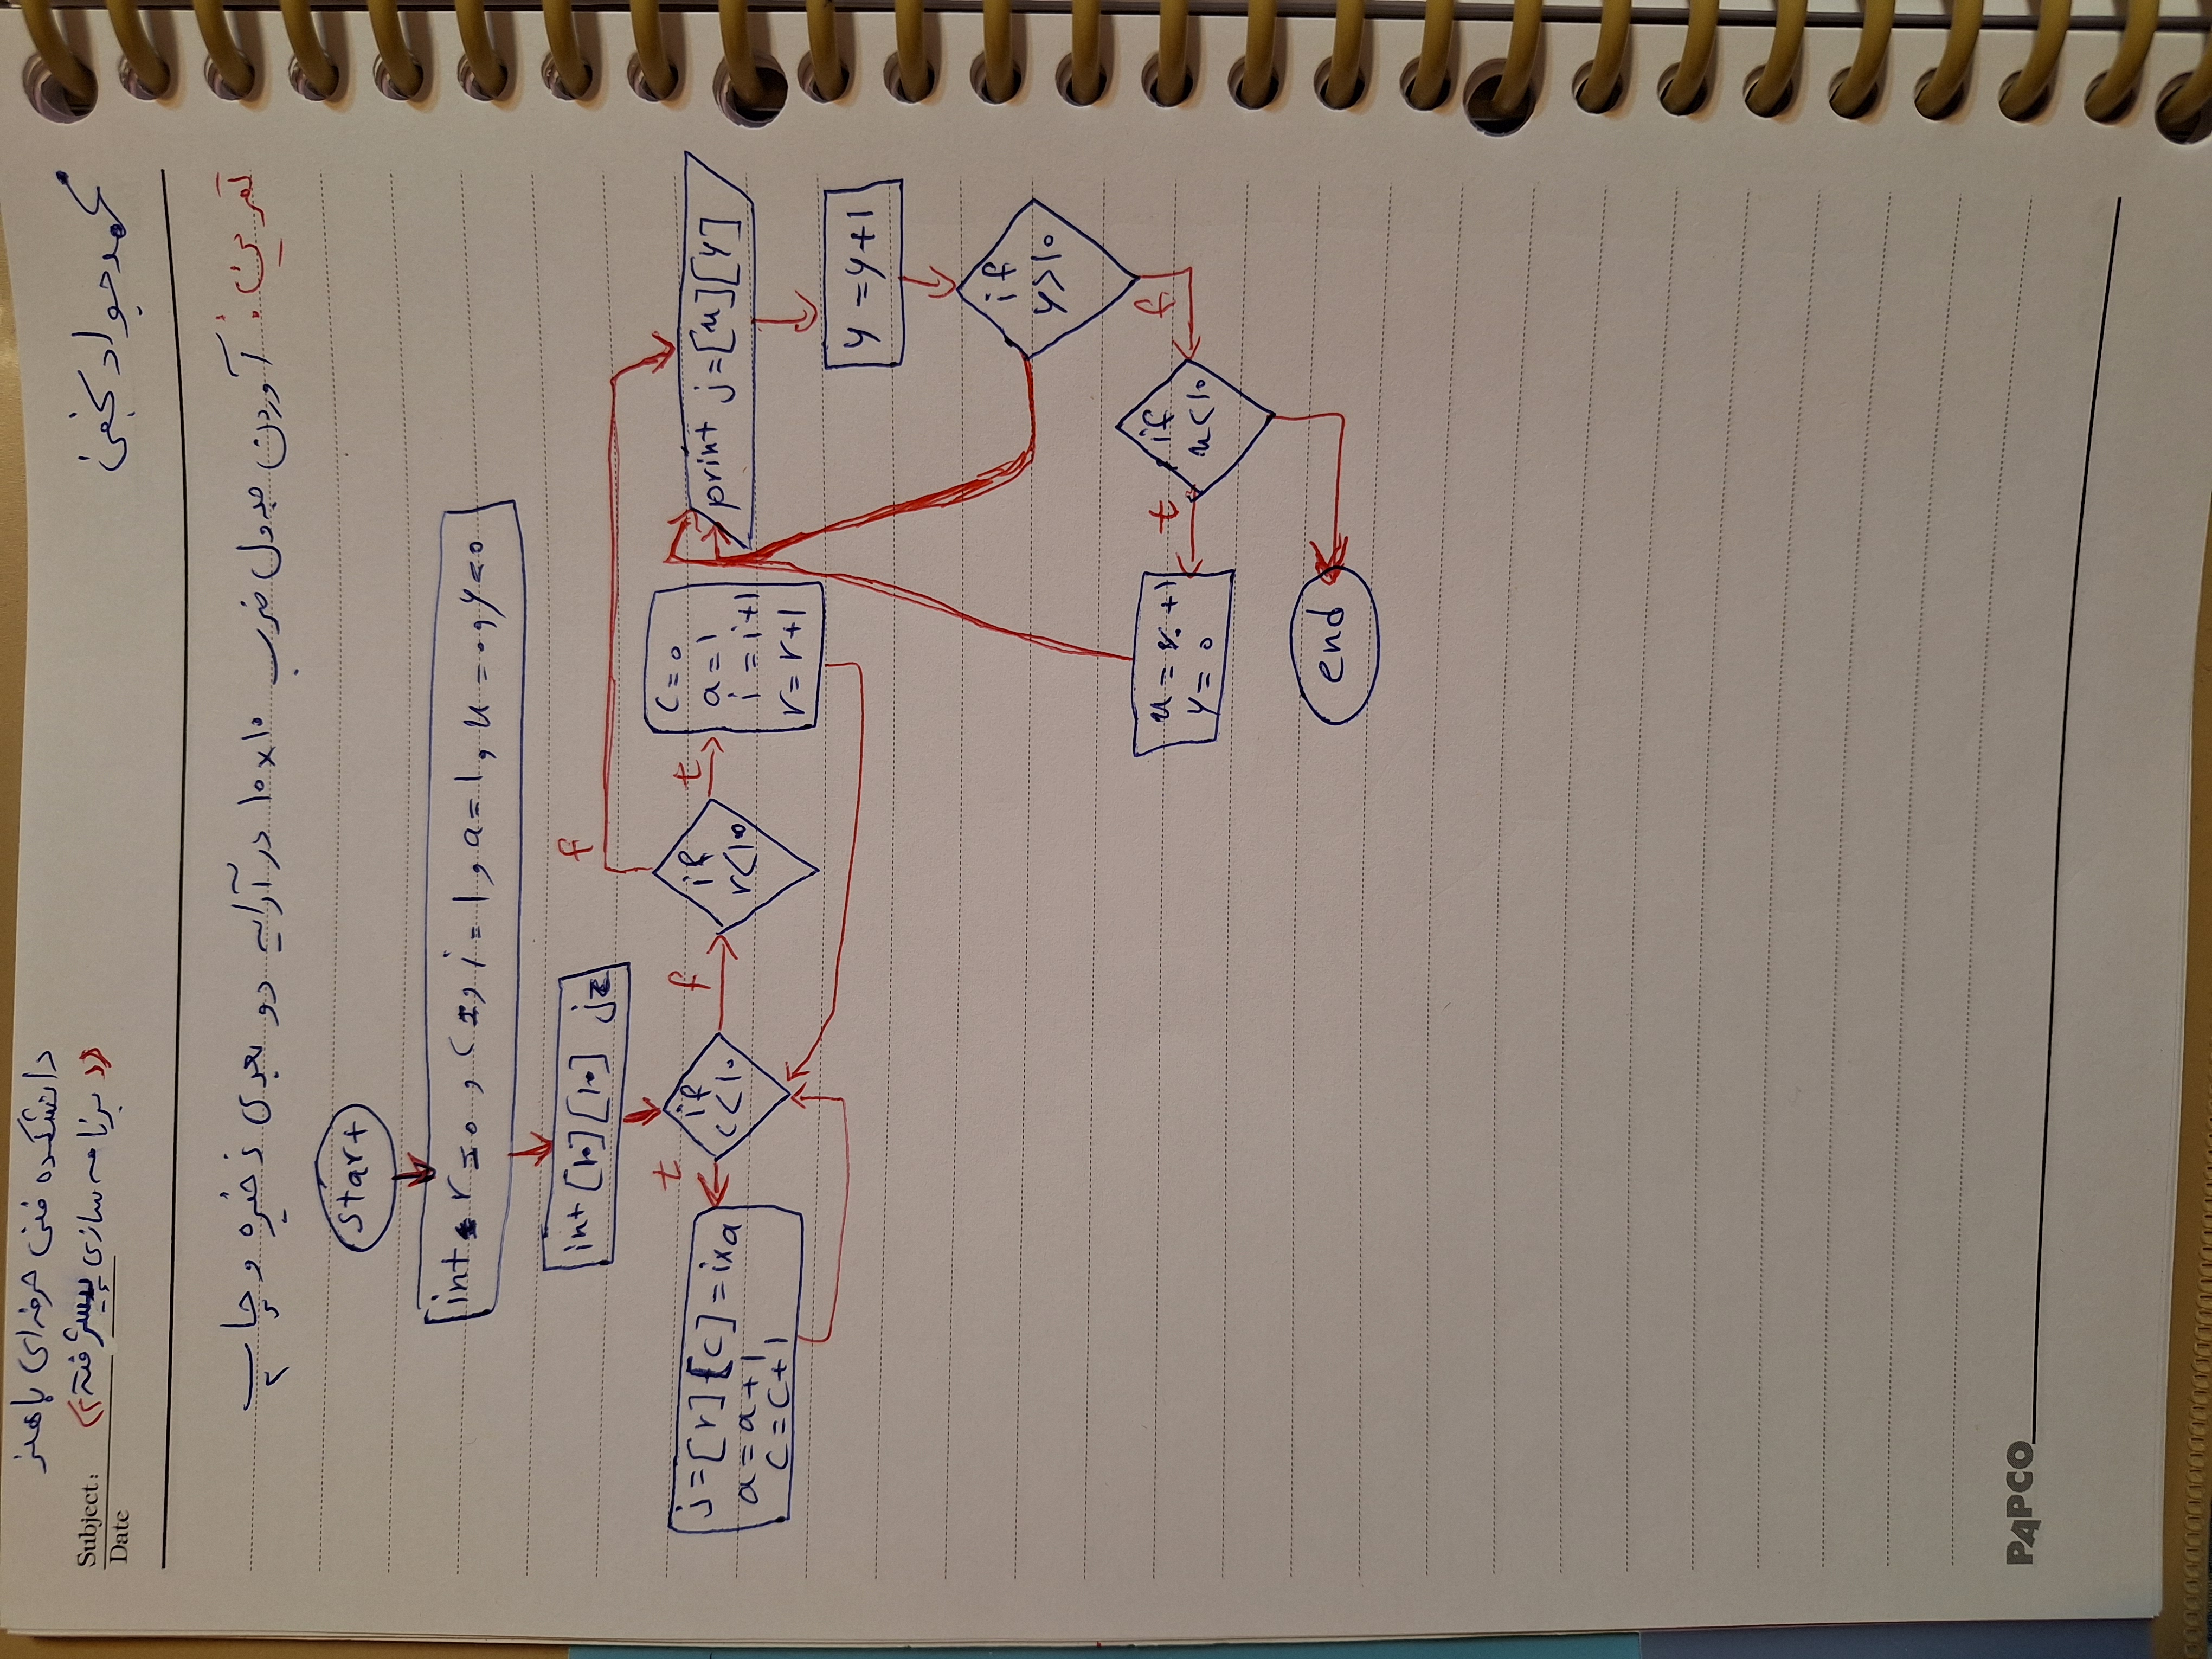 دانشکده فنی حرفه‌ای باهنر
Subject: «برنامه سازی پیشرفته ۲»
Date
محمدجواد نجفی
تمرین: آوردن جدول ضرب ۱۰×۱۰ در آرایه دو بعدی ذخیره و چاپ
start
int r=0, c=, i=1, a=1, x=0, y=0
int [10][10] j=
f
t
j=[r][c]=i×a
a=a+1
c=c+1
if
c<10
f
if
r<10
t
c=0
a=1
i=i+1
r=r+1
print j=[x][y]
y=y+1
if
y>10
f
if
x<10
t
x= +1
y=0
end
PAPCO